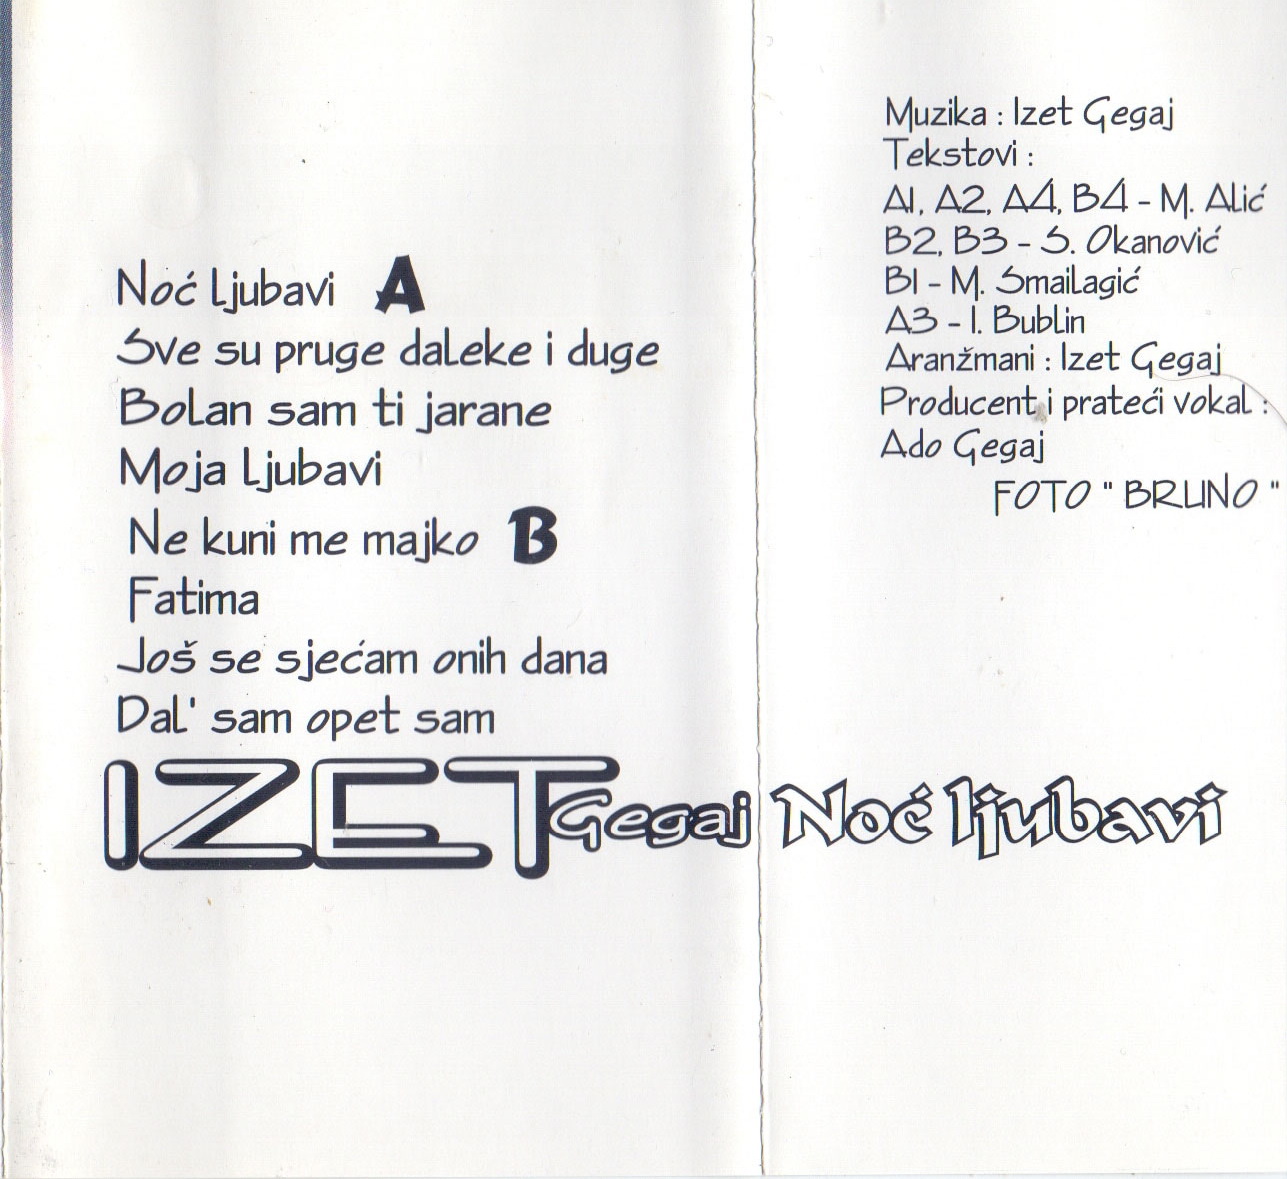 Noć ljubavi A
Sve su pruge daleke i duge
Bolan sam ti jarane
Moja ljubavi
Ne kuni me majko B
Fatima
Još se sjećam onih dana
Dal' sam opet sam
IZET Gegaj Noć ljubavi
Muzika : Izet Gegaj
Tekstovi :
A1, A2, A4, B4 - M. Alić
B2, B3 - S. Okanović
B1 - M. Smailagić
A3 - I. Bublin
Aranžmani : Izet Gegaj
Producent i prateći vokal :
Ado Gegaj
FOTO " BRUNO "